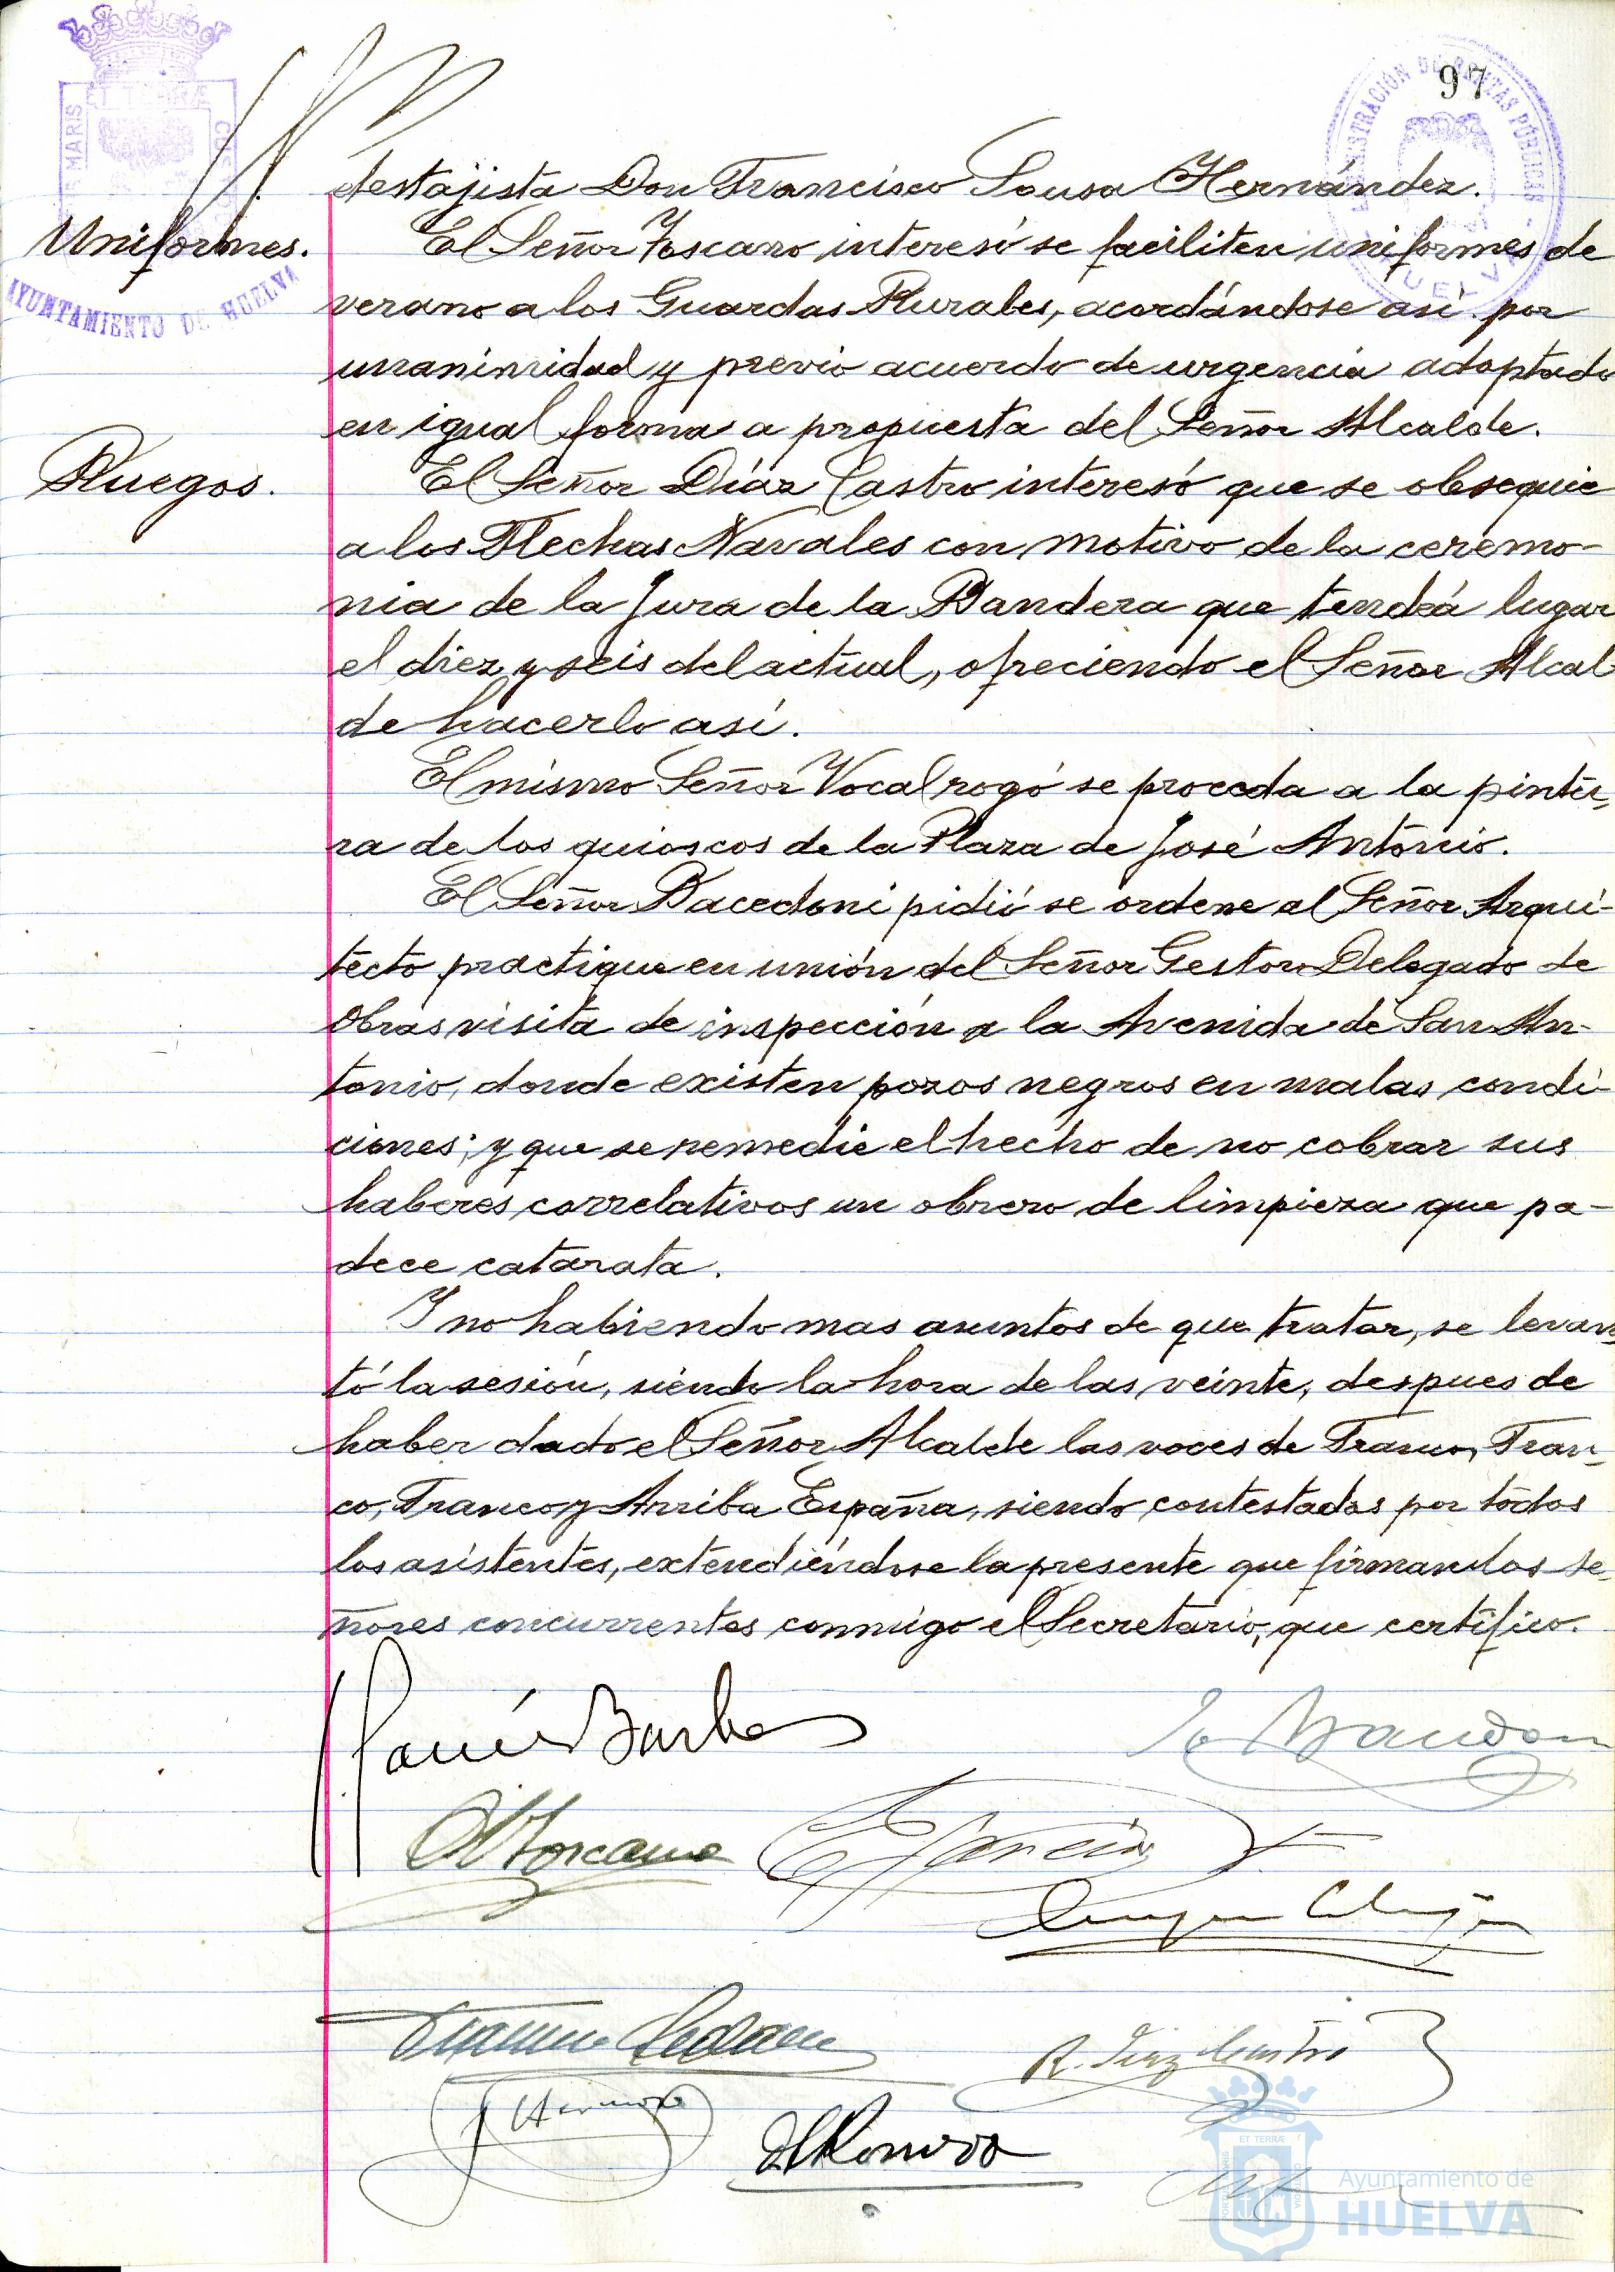 97
ET TERRÆ
MARIS
ADMINISTRACIÓN DE RENTAS PÚBLICAS
HUELVA
AYUNTAMIENTO DE HUELVA
destajista Don Francisco Sousa Hernández.
Uniformes.
El Señor Toscano interesó se faciliten uniformes de
verano a los Guardas Rurales, acordándose así por
unanimidad y previo acuerdo de urgencia adoptado
en igual forma a propuesta del Señor Alcalde.
Ruegos.
El Señor Díaz Castro interesó que se obsequie
a los Flechas Navales con motivo de la ceremo-
nia de la Jura de la Bandera que tendrá lugar
el diez y seis del actual, ofreciendo el Señor Alcal
de hacerlo así.
El mismo Señor Vocal rogó se proceda a la pintu-
ra de los quioscos de la Plaza de José Antonio.
El Señor Bacedoni pidió se ordene al Señor Arqui-
tecto practique en unión del Señor Gestor Delegado de
Obras visita de inspección a la Avenida de San An-
tonio, donde existen pozos negros en malas condi-
ciones; y que se remedie el hecho de no cobrar sus
haberes correlativos un obrero de limpieza que pa-
dece catarata.
Y no habiendo mas asuntos de que tratar, se levan-
tó la sesión, siendo la hora de las veinte, despues de
haber dado el Señor Alcalde las voces de Franco, Fran-
co, Franco y Arriba España, siendo contestadas por todos
los asistentes, extendiéndose la presente que firman los se-
ñores concurrentes conmigo el Secretario, que certifico.
Toscano
García
R. Díaz Castro
Romero
ET TERRÆ
Ayuntamiento de
HUELVA